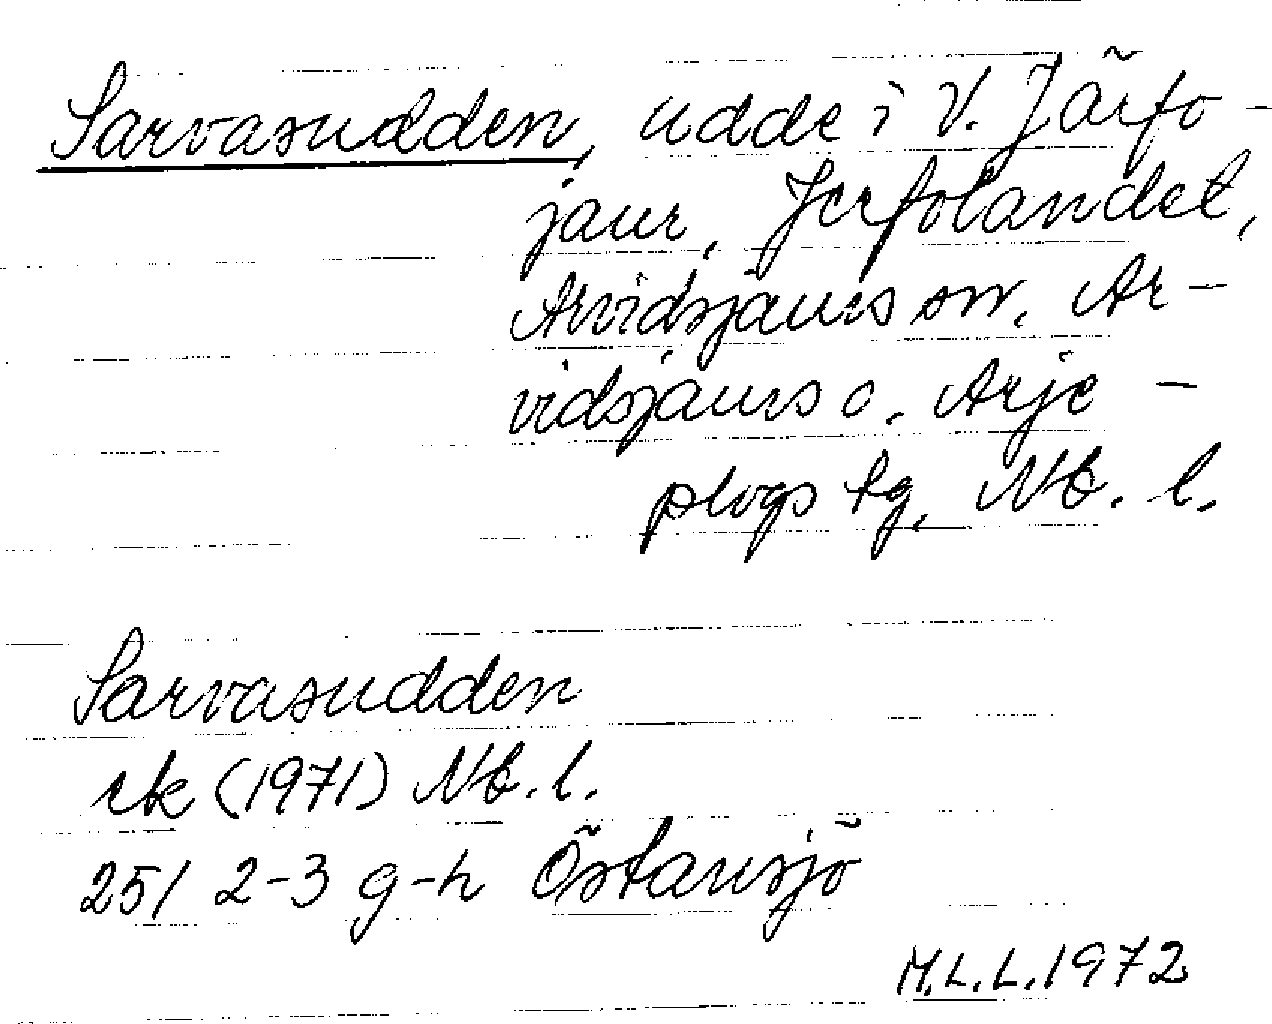 Sarvasudden, udde i V. Järfo-
jaur, Jerfolandet,
Arvidsjaurs sn, Ar-
vidsjaurs o. Arje-
plogs tg, Nb. l.
Sarvasudden
rtk (1971) Nb. l.
25I 2-3 g-h Östansjö
M.L.L. 1972